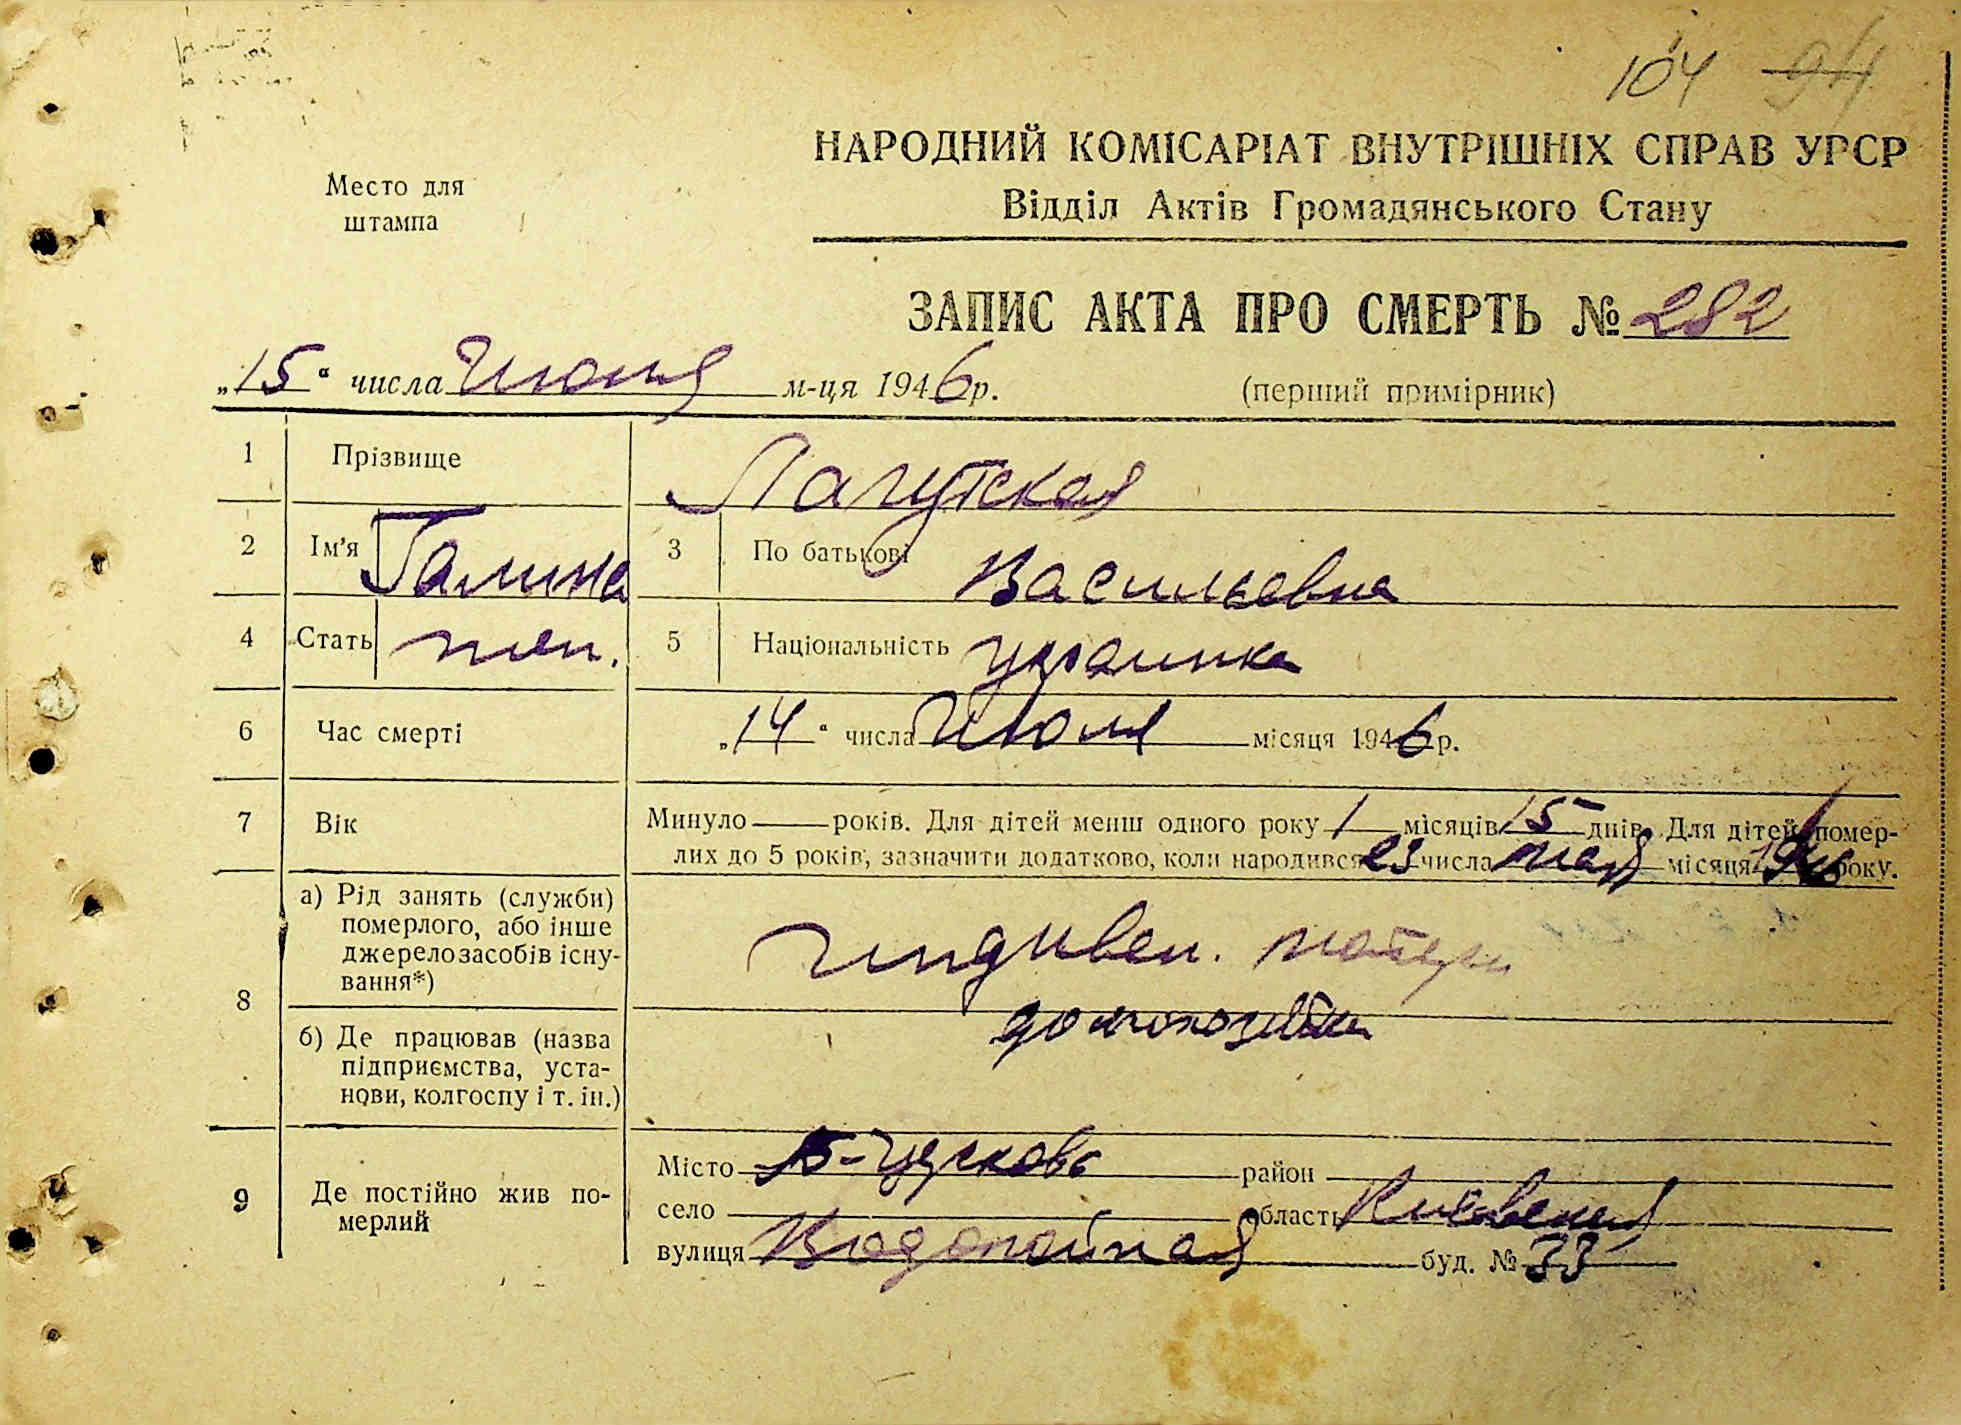 104 94
Место для
штампа
НАРОДНИЙ КОМІСАРІАТ ВНУТРІШНІХ СПРАВ УРСР
Відділ Актів Громадянського Стану
ЗАПИС АКТА ПРО СМЕРТЬ № 282
„15“ числа Июля м-ця 1946р.
(перший примірник)
1 Прізвище Лагутская
2 Ім’я Галина 3 По батькові Васильевна
4 Стать жен. 5 Національність украинка
6 Час смерті „14“ числа Июля місяця 1946р.
7 Вік Минуло — років. Для дітей менш одного року 1 місяців 15 днів. Для дітей, помер-
лих до 5 років, зазначити додатково, коли народився 23 числа мая місяця 1946 року.
8 а) Рід занять (служби)
померлого, або інше
джерело засобів існу-
вання*)
индивен. матери
домохозяйка
б) Де працював (назва
підприємства, уста-
нови, колгоспу і т. ін.)
9 Де постійно жив по-
мерлий
Місто Б-Церковь район
село область Киевская
вулиця Водопойная буд. № 33